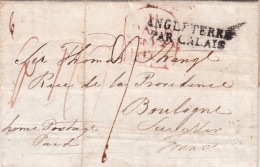 6
INGLETERRE
PAR CALAIS
Sir Thomas Strange
Rue de la Providence
Boulogne
Sur Mer
France
home Postage
Paid